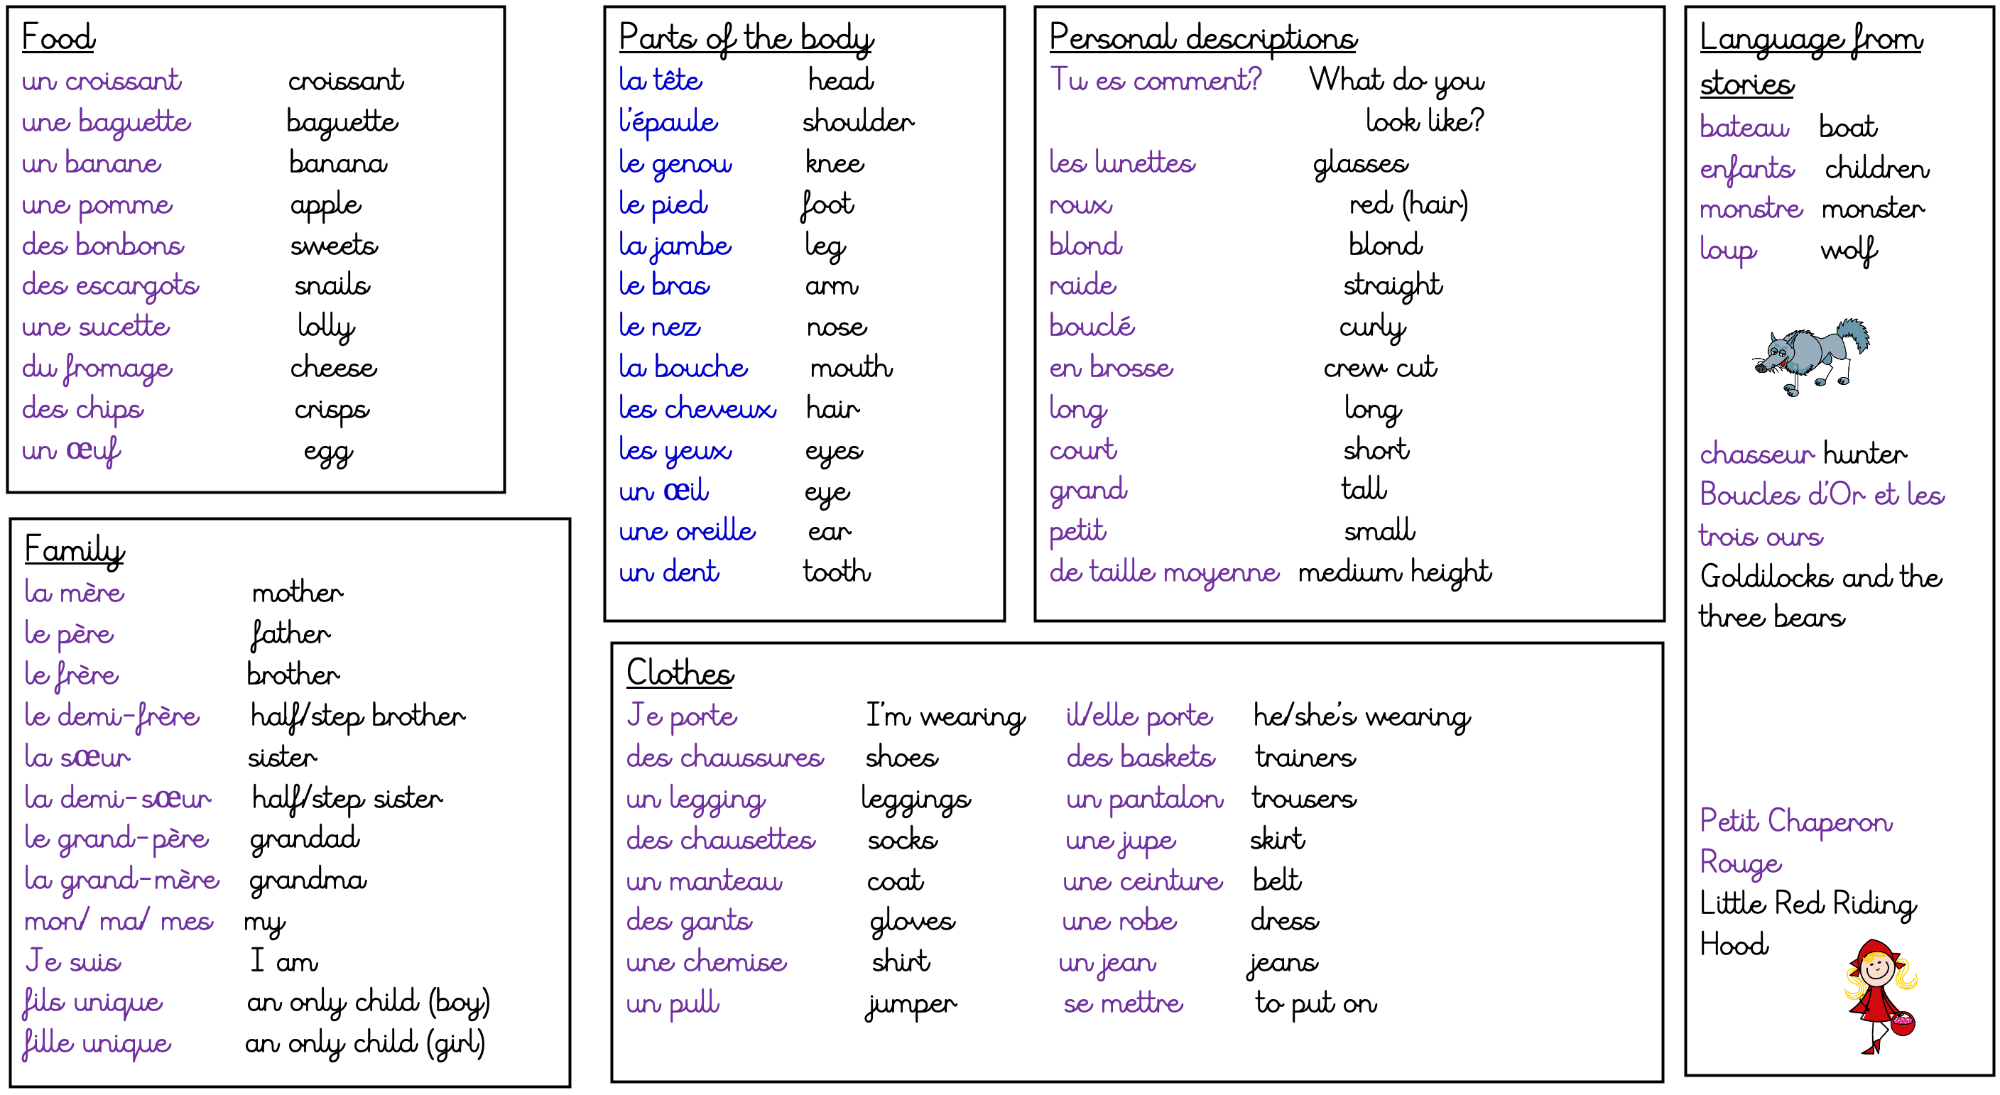 Food
un croissant croissant
une baguette baguette
un banane banana
une pomme apple
des bonbons sweets
des escargots snails
une sucette lolly
du fromage cheese
des chips crisps
un œuf egg
Family
la mère mother
le père father
le frère brother
le demi-frère half/step brother
la sœur sister
la demi-sœur half/step sister
le grand-père grandad
la grand-mère grandma
mon/ ma/ mes my
Je suis I am
fils unique an only child (boy)
fille unique an only child (girl)
Parts of the body
la tête head
l'épaule shoulder
le genou knee
le pied foot
la jambe leg
le bras arm
le nez nose
la bouche mouth
les cheveux hair
les yeux eyes
un œil eye
une oreille ear
un dent tooth
Personal descriptions
Tu es comment? What do you
look like?
les lunettes glasses
roux red (hair)
blond blond
raide straight
bouclé curly
en brosse crew cut
long long
court short
grand tall
petit small
de taille moyenne medium height
Clothes
Je porte I'm wearing il/elle porte he/she's wearing
des chaussures shoes des baskets trainers
un legging leggings un pantalon trousers
des chausettes socks une jupe skirt
un manteau coat une ceinture belt
des gants gloves une robe dress
une chemise shirt un jean jeans
un pull jumper se mettre to put on
Language from
stories
bateau boat
enfants children
monstre monster
loup wolf
chasseur hunter
Boucles d'Or et les
trois ours
Goldilocks and the
three bears
Petit Chaperon
Rouge
Little Red Riding
Hood